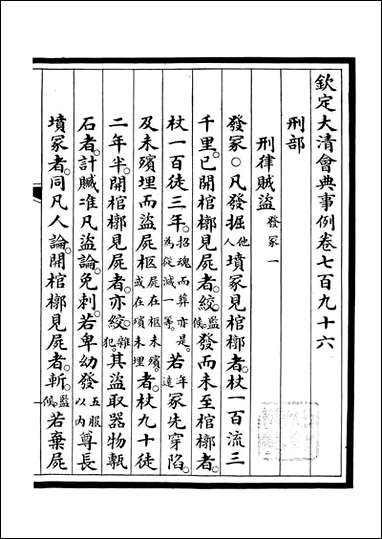 欽定大清會典事例卷七百九十六
刑部
刑律賊盜發冢一
發冢○凡發掘他人墳冢見棺槨者杖一百流三
千里。已開棺槨見屍者。絞。監候。發而未至棺槨者。
杖一百徒三年。招魂而葬亦是。為從減一等。若年遠冢先穿陷。
及未殯埋而盜屍柩屍在柩未殯。或在殯未埋。者。杖九十徒
二年半。開棺槨見屍者。亦絞。雜犯。其盜取器物甎
石者。計贓准凡盜論。免刺。若卑幼發五服以內尊長
墳冢者。同凡人論。開棺槨見屍者。斬。監候。若棄屍